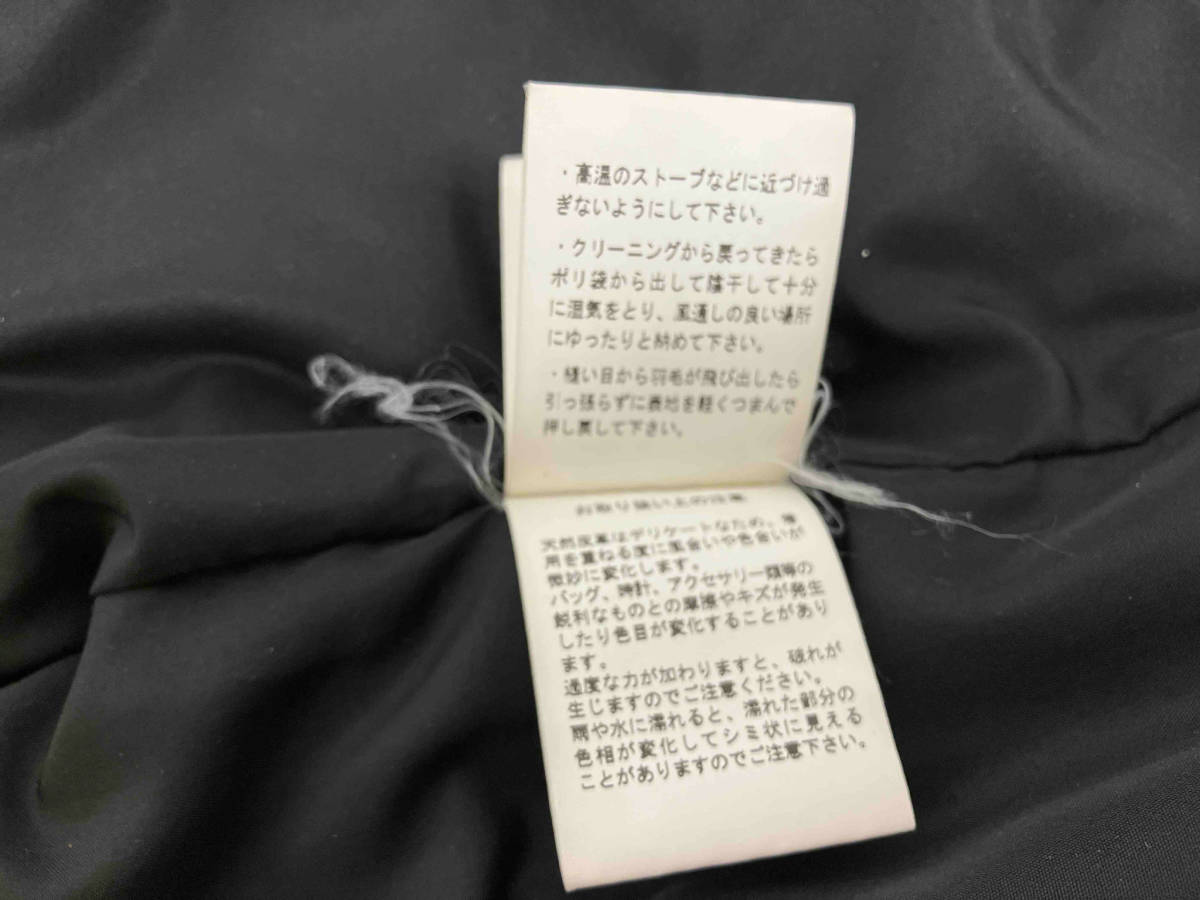 ・高温のストーブなどに近づけ過
ぎないようにして下さい。
・クリーニングから戻ってきたら
ポリ袋から出して陰干しして十分
に湿気をとり、風通しの良い場所
にゆったりと納めて下さい。
・縫い目から羽毛が飛び出したら
引っ張らずに表地を軽くつまんで
押し戻して下さい。
お取り扱い上の注意
天然皮革はデリケートなため、着
用を重ねる度に風合いや色合いが
微妙に変化します。
バッグ、時計、アクセサリー類等の
鋭利なものとの摩擦やキズが発生
したり色目が変化することがあり
ます。
過度な力が加わりますと、破れが
生じますのでご注意ください。
雨や水に濡れると、濡れた部分の
色相が変化してシミ状に見える
ことがありますのでご注意下さい。